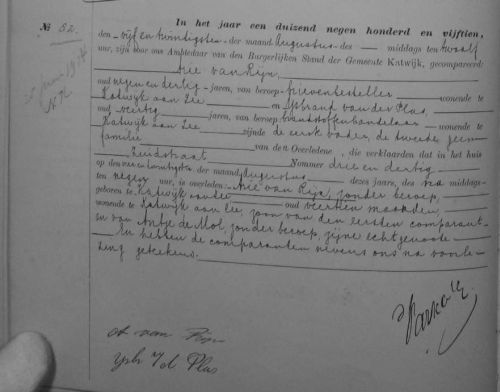 № 52.
In het jaar een duizend negen honderd en vijftien,
den vijf en twintigsten der maand Augustus des middags ten twaalf
ure, zijn voor ons Ambtenaar van den Burgerlijken Stand der Gemeente Katwijk, gecompareerd:
Arie van Rijn,
oud negen en dertig jaren, van beroep brievenbesteller wonende te
Katwijk aan Zee en IJsbrand van der Plas,
oud veertig jaren, van beroep wonende te
Katwijk aan Zee zijnde de eerste vader, de tweede geen
familie van de Overledene, die verklaarden dat in het huis
Zuidstraat Nommer drie en dertig
op den vier en twintigsten der maand Augustus dezes jaars, des na middags
ten negen ure, is overleden: Arie van Rijn, zonder beroep,
geboren te Katwijk aan Zee oud veertien maanden,
wonende te Katwijk aan Zee, zoon van den eersten comparant
en van Antje de Mol, zonder beroep, zijne echtgenoote
En hebben de comparanten nevens ons na voorle-
zing getekend.
A van Rijn
Ysb v/d Plas